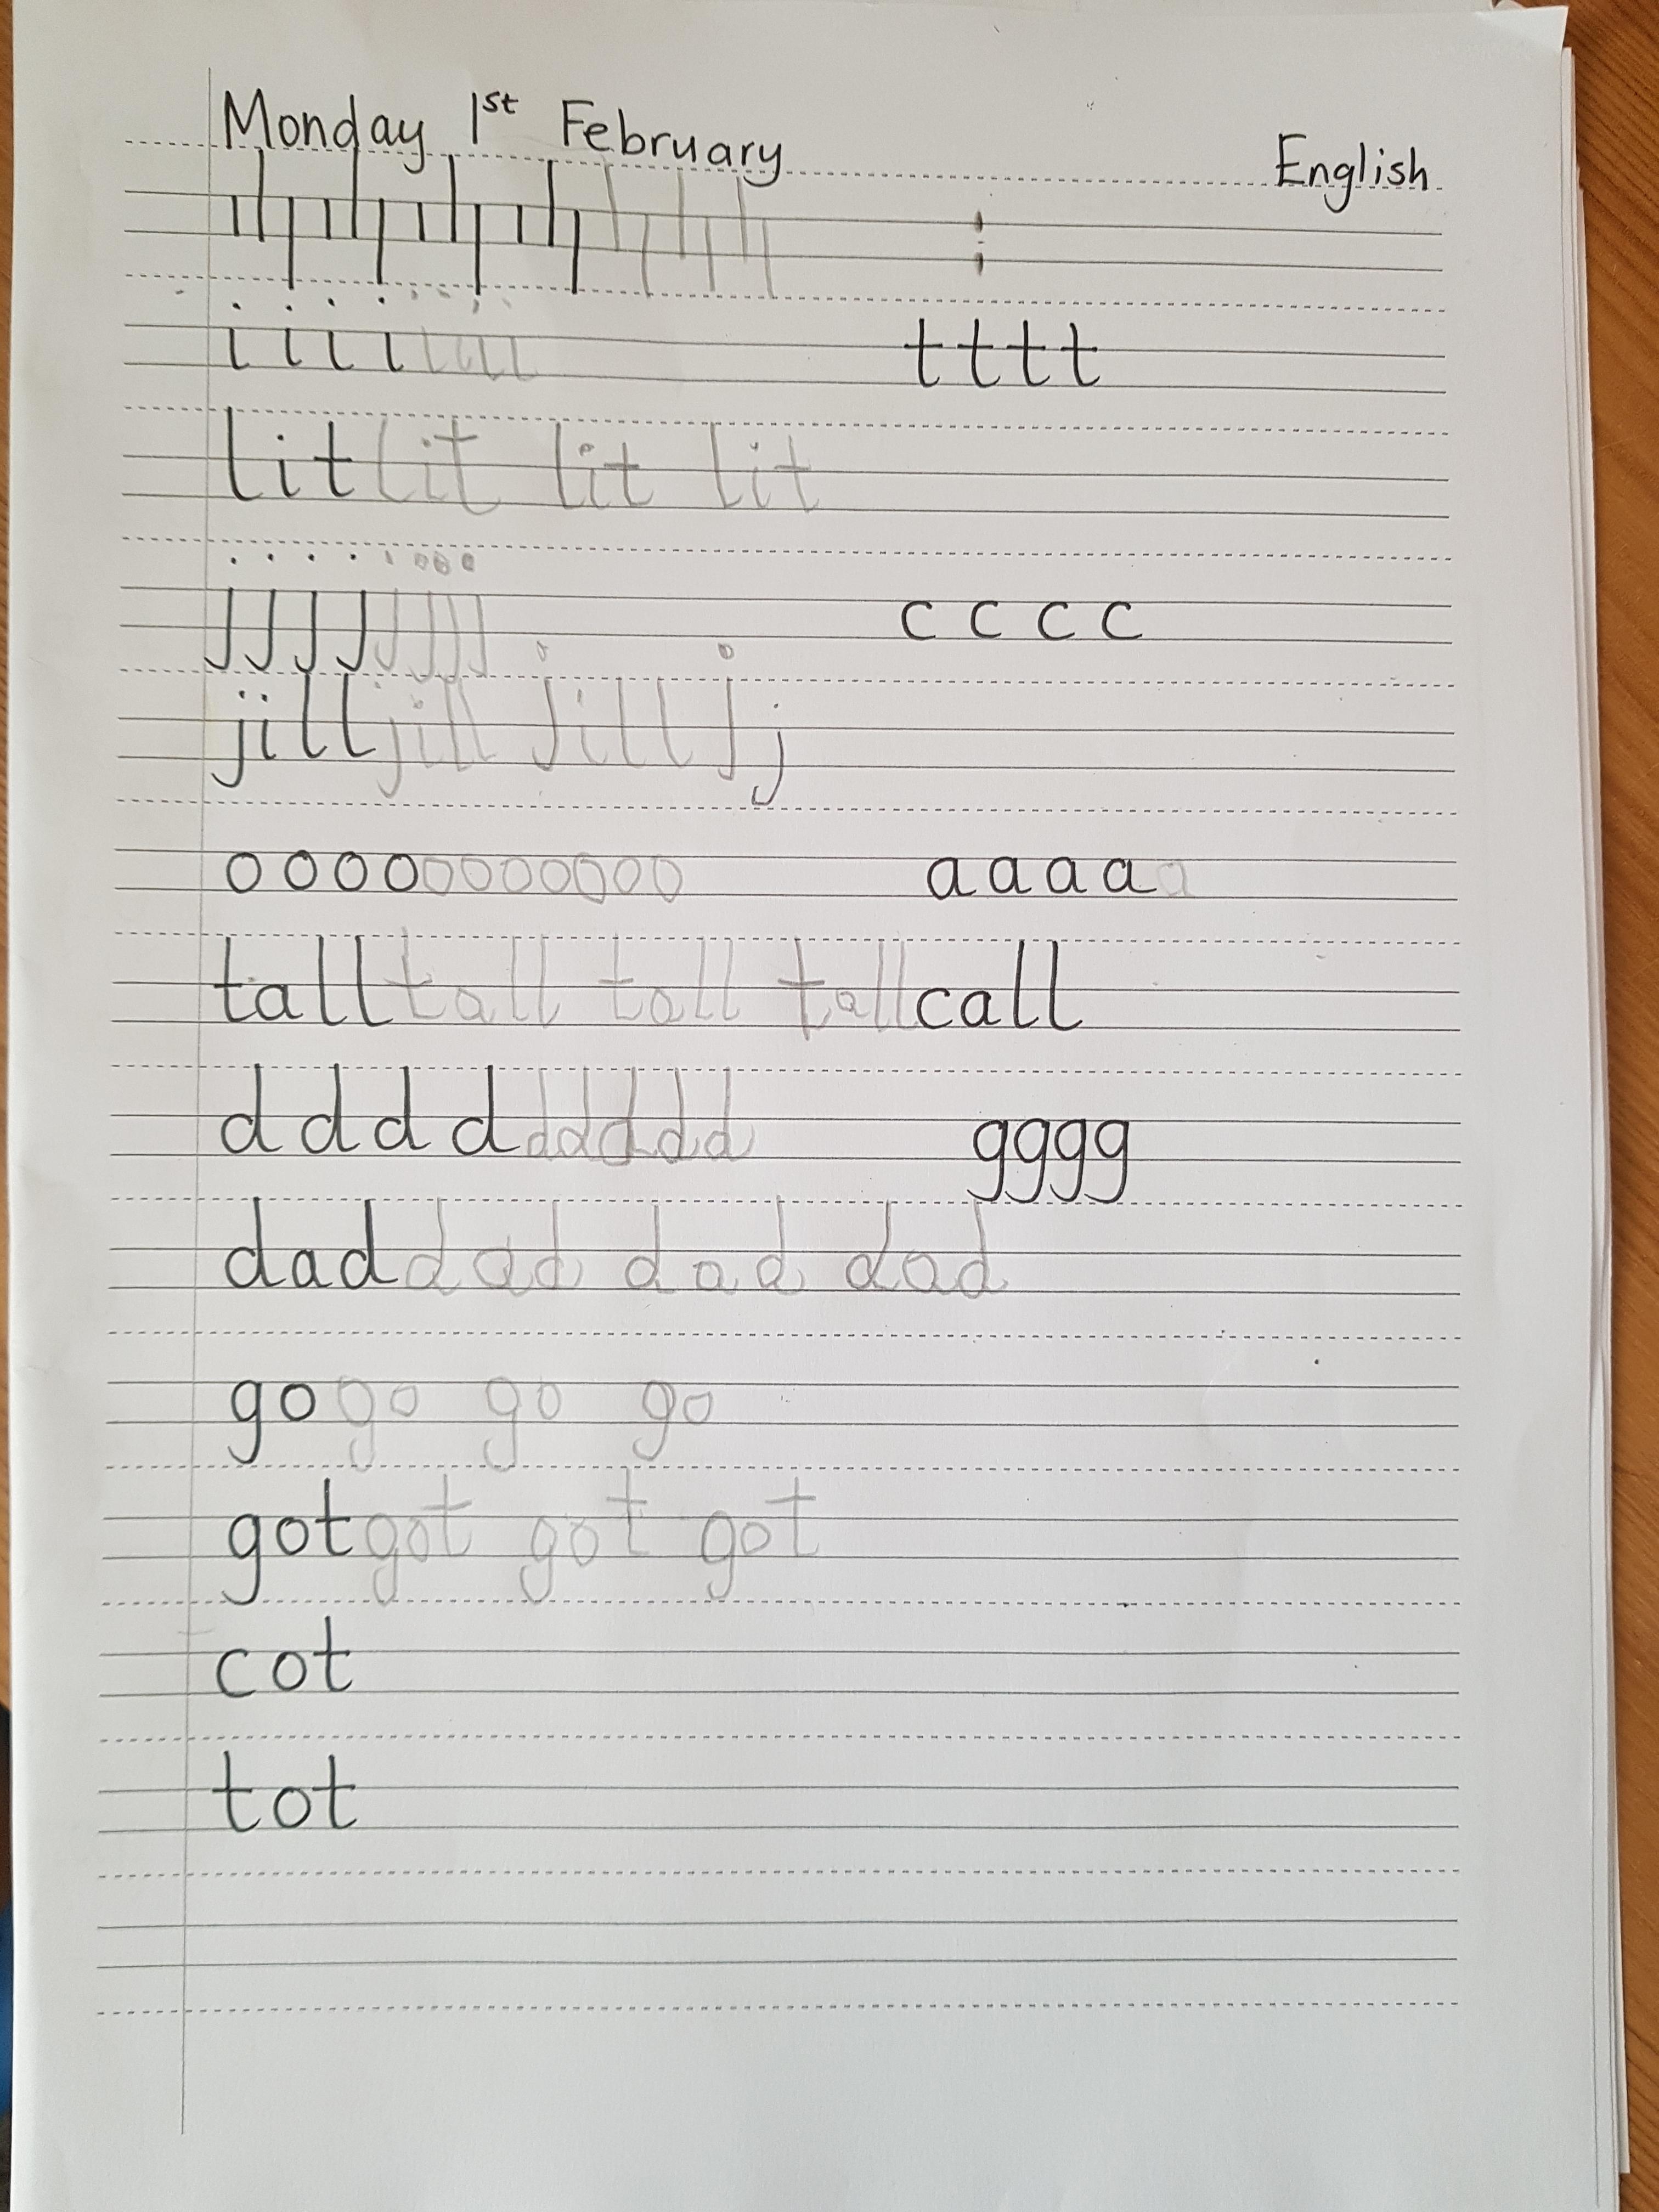 Monday 1st February English
i i i i i i i i t t t t
lit lit lit lit
j j j j j j j j c c c c
jill jill jill j j
o o o o o o o o o o o o o a a a a a
tall tall tall tall call
d d d d d d d d d g g g g
dad dad dad dad
go go go go
got got got got
cot
tot